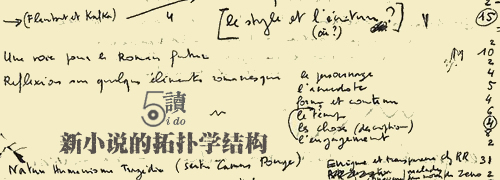 →(Flaubert et Kafka) 4 [le style et l'écriture ?] 15
(où?)
Une voie pour le Roman futur 10
Réflexions sur quelques éléments romanesques le personnage 2
l'anecdote 4
forme et contenu 4
le temps
les choses (description) 4
l'engagement
5讀
ido
新小说的拓扑学结构
Nature Humanisme Tragédie (Sartre Camus Ponge) Enigme et transparence ch RR 31
Zeno 2